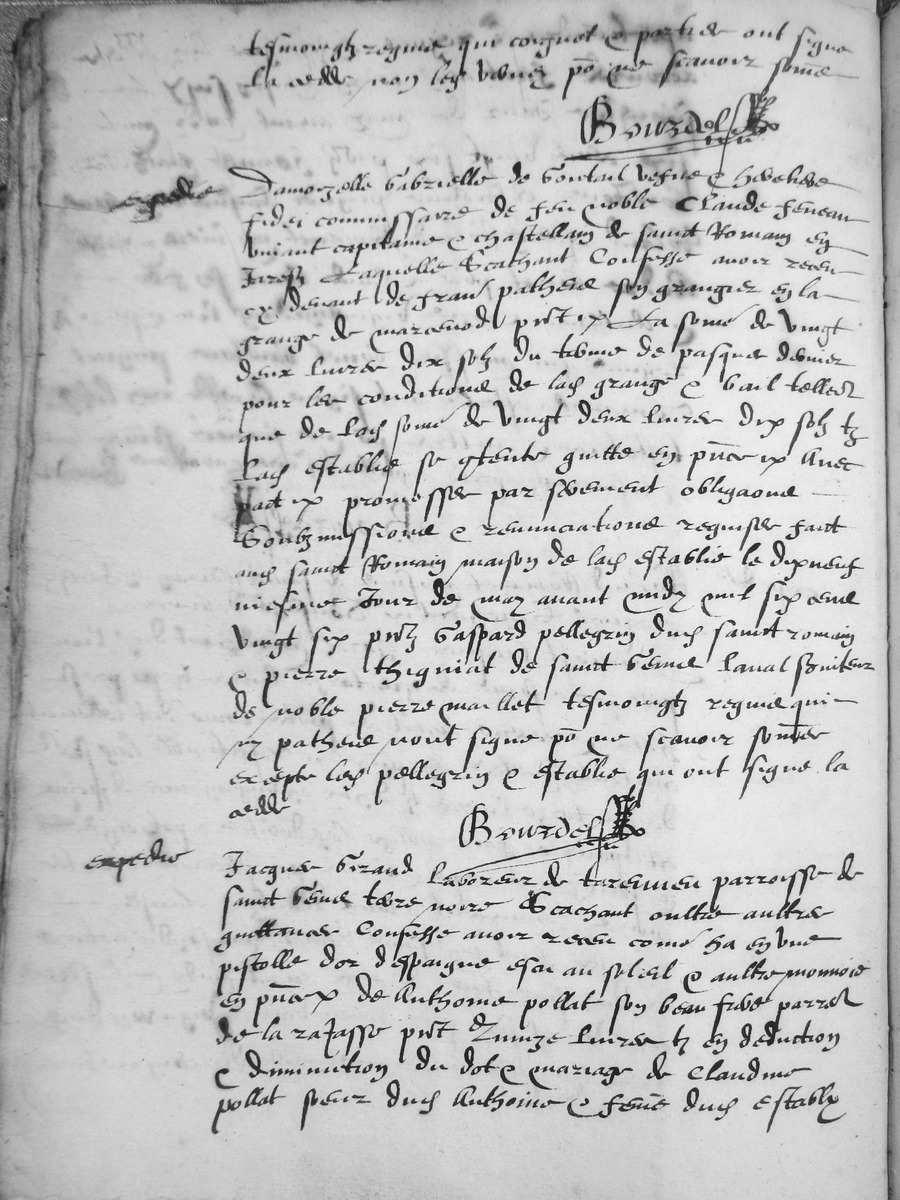 tesmoingtz requis qui coignet & parties ont signe
la cedde non lesd pñ ne scavoir somé
Bourdel
expedie
Damoyzelle Gabrielle de vefve & heretiere
fidei commissaire de feu noble Claude feneau
vivant capitaine & chastellain de sainct Romain en
Jarestz Laquelle Scachant Confesse avoir receu
cy devant de franc pathene son grangier en la
grange de marcenod pñt La somé de vingt
deux livres dix solz du terme de pasques dernier
pour les conditions de lad grange & bail tellem̃t
que de lad some de vingt deux livres dix solz tz
Lad establie se contente quitte en pñce Avec
pact promesses par serement obligaons
Soubzmissions & renunciations requises faict
aud sainct Romain maison de lad establie le dixneuf
viesme Jour de may avant midy mil six cens
vingt six pñtz Gaspard pellegrin dud sainct romain
& pierre thigniat de sainct Genis Laval serviteur
de noble pierre maillet tesmoingtz requis qui
ny pathene nont signe pñ ne scavoir somés
excepte lesd pellegrin & establie qui ont signe la
cedde
Bourdel
expedie
Jacques Giraud laboreur de tarenieu parroisse de
sainct Genis terre noire Scachant oultre aultres
quittances Confesse avoir receu comé ha en une
pistolle dor despaigne escu au soleil & aultre monnoie
en pñce de Anthoine pollat son beau frere parr̃e
de la rajasse pñt Quinze livres tz en deduction
& diminution du dot & mariage de Claudine
pollat soeur dud Anthoine & femé dud establÿ